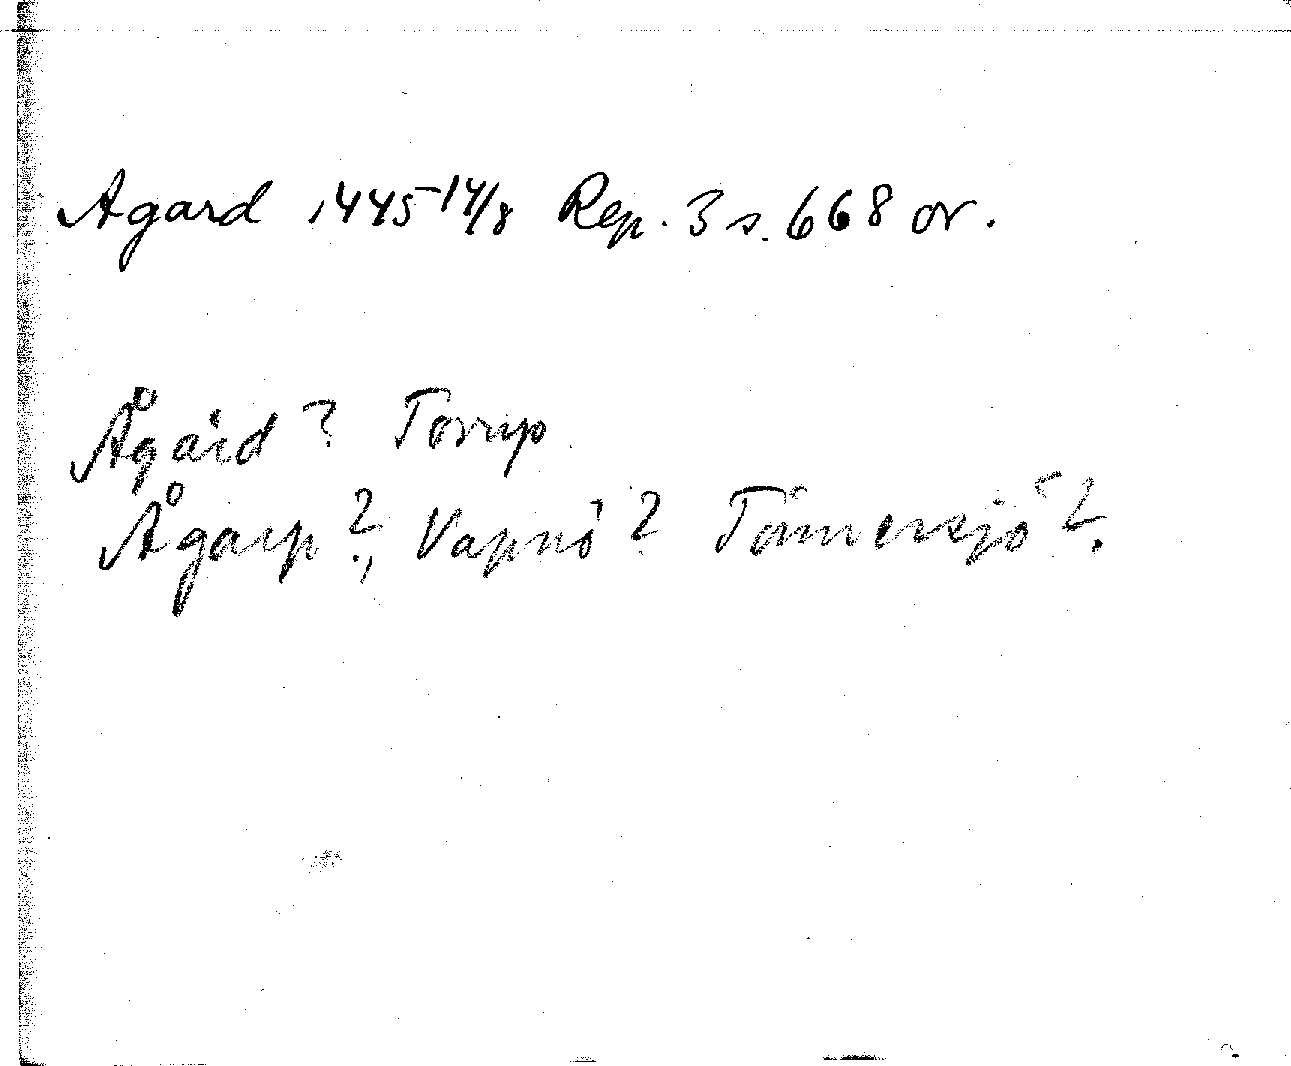 Agard 1445 14/8 Rep. 3 s. 668 or.
Ågård? Torup
Ågarp?, Vapnö? Tönnersjö?